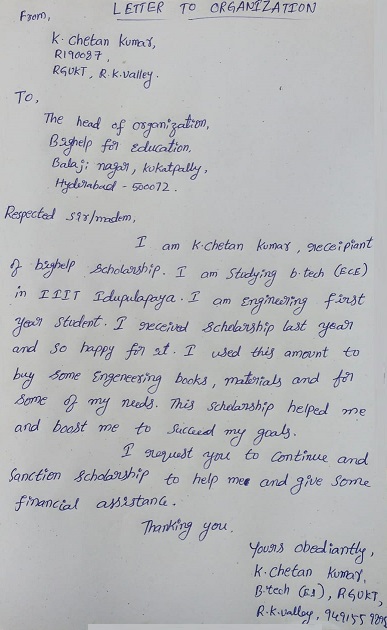 LETTER TO ORGANIZATION
From,
K. Chetan Kumar,
R190087,
RGUKT, R.K.valley.
To,
The head of organization,
Bighelp for Education,
Balaji nagar, kukatpally,
Hyderabad - 500072.
Respected sir/madem,
I am K.chetan kumar, receipiant
of bighelp scholarship. I am studying b.tech (ECE)
in IIIT Idupulapaya. I am Engineering first
year student. I received scholarship last year
and so happy for it. I used this amount to
buy some Engeneering books, materials and for
some of my needs. This scholarship helped me
and boost me to succeed my goals.
I request you to continue and
sanction scholarship to help me and give some
financial assistance.
Thanking you.
Yours obediantly,
K. chetan kumar,
B.tech (E3), RGUKT,
R.K.valley,